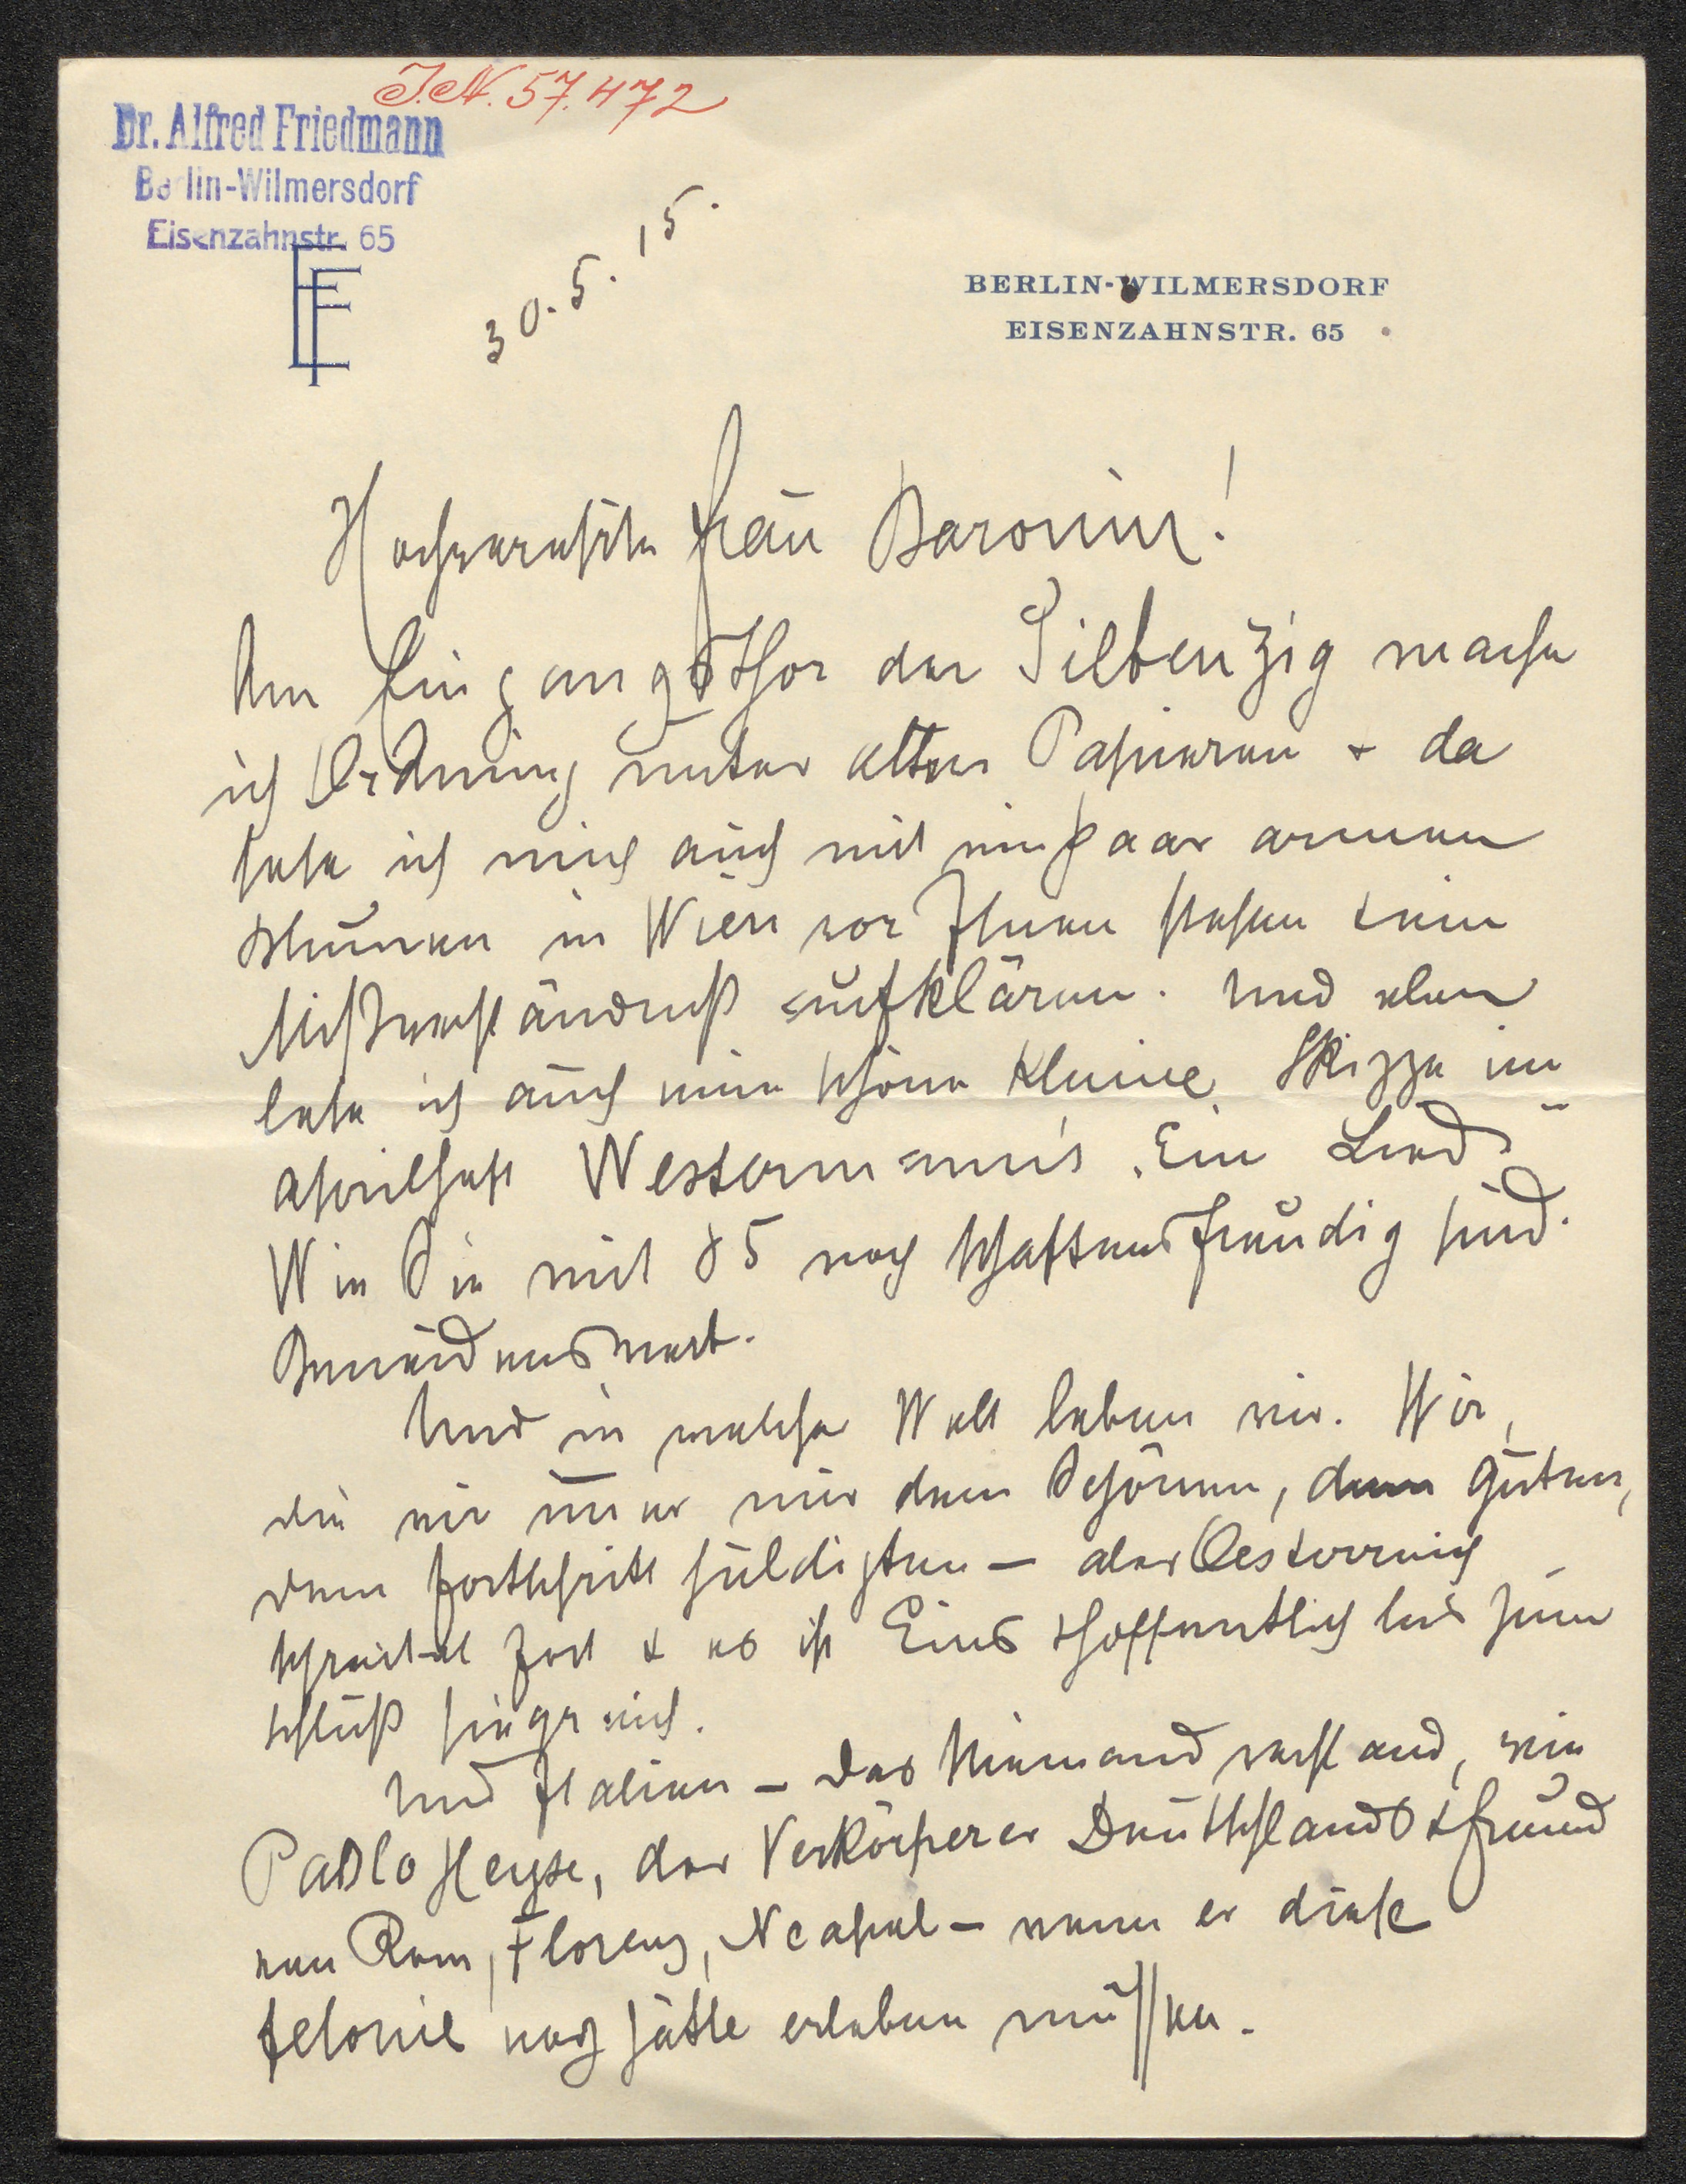 J.N. 57.472
Dr. Alfred Friedmann
Berlin-Wilmersdorf
Eisenzahnstr. 65
EF
30.5.15.
BERLIN-WILMERSDORF
EISENZAHNSTR. 65
Hochverehrte Frau Baronin!
Am Eingangsthor der Siebenzig mache
ich Ordnung unter alten Papieren + da
sehe ich mich auch mit ein paar armen
Blumen in Wien vor Ihnen stehen + ein
Mißverständniß aufklären. Und eben
lese ich auch eine schöne kleine Skizze im
Aprilheft Westermann's „Ein Lied"
Wie Sie mit 85 noch schaffensfreudig sind.
Beneidenswert.
Und in welcher Welt leben wir. Wir,
die wir immer nur dem Schönen, dem Guten,
dem Fortschritt huldigten – aber Oesterreich
schreitet fort + es ist Eins + hoffentlich bis zum
Schluß siegreich.
Und Italien – das Niemand verstand, wie
Paolo Heyse, der Verkörperer Deutschlands + Freund
von Rom, Florenz, Neapel – wenn er diese
Felonie noch hätte erleben müssen.